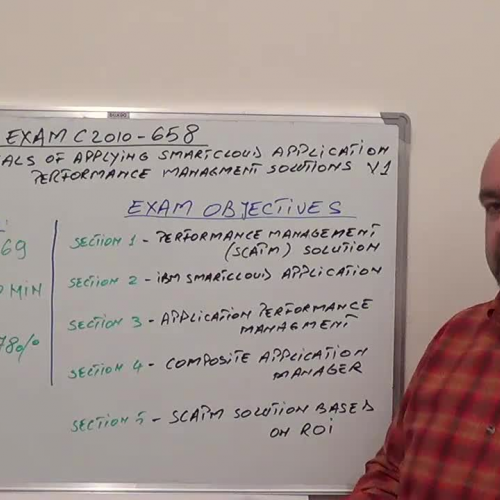 EXAM C2010-658
ALS OF APPLYING SMARTCLOUD APPLICATION
PERFORMANCE MANAGMENT SOLUTIONS V1
EXAM OBJECTIVES
69
MIN
78%
SECTION 1 - PERFORMANCE MANAGEMENT
(SCAPM) SOLUTION
SECTION 2 - IBM SMARTCLOUD APPLICATION
SECTION 3 - APPLICATION PERFORMANCE
MANAGMENT
SECTION 4 - COMPOSITE APPLICATION
MANAGER
SECTION 5 - SCAPM SOLUTION BASED
ON ROI